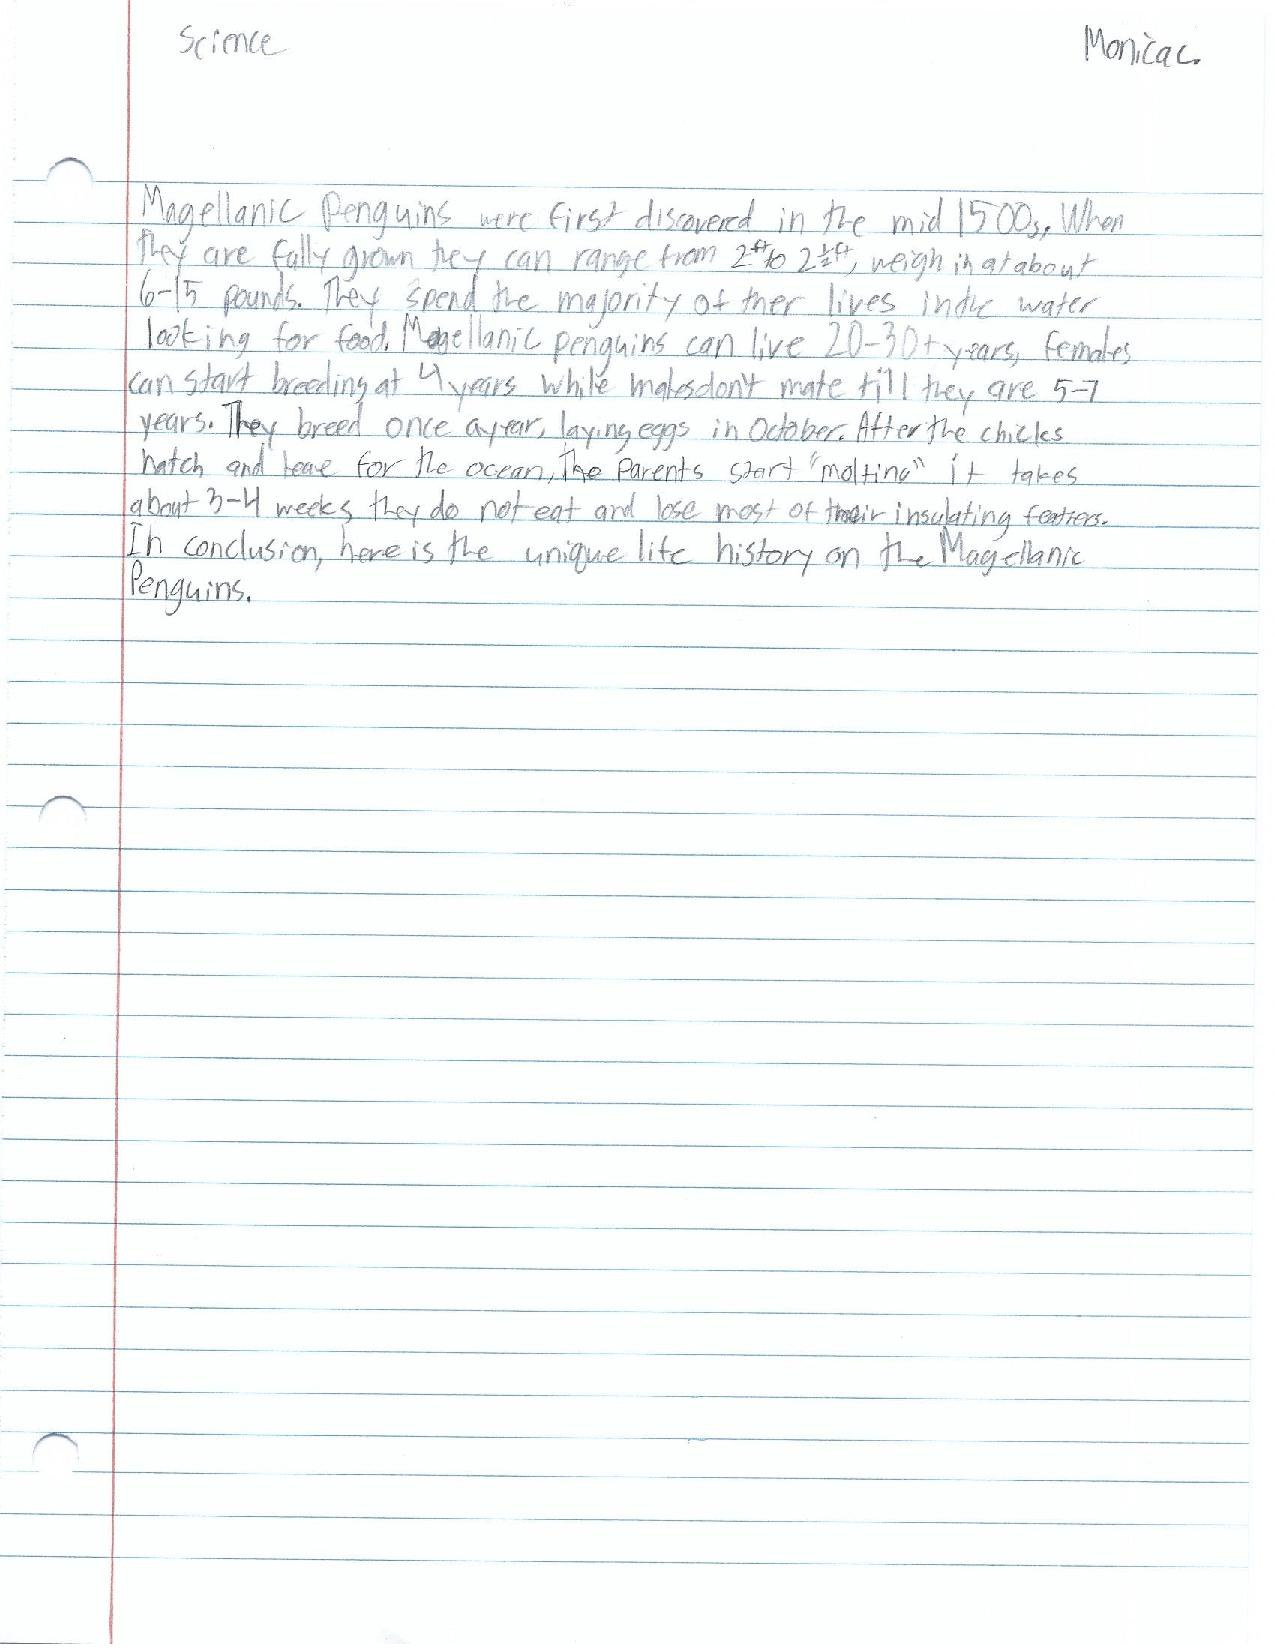 Science
Monica C.
Magellanic Penguins were first discovered in the mid 1500s. When
they are fully grown they can range from 2ft to 2 1/2 ft, weigh in at about
6-15 pounds. They spend the majority of ther lives in the water
looking for food. Magellanic penguins can live 20-30+ years, females
can start breeding at 4 years while males don't mate till they are 5-7
years. They breed once a year, laying eggs in October. After the chicks
hatch and leave for the ocean, The Parents start "molting" it takes
about 3-4 weeks they do not eat and lose most of their insulating feathers.
In conclusion, here is the unique life history on the Magellanic
Penguins.